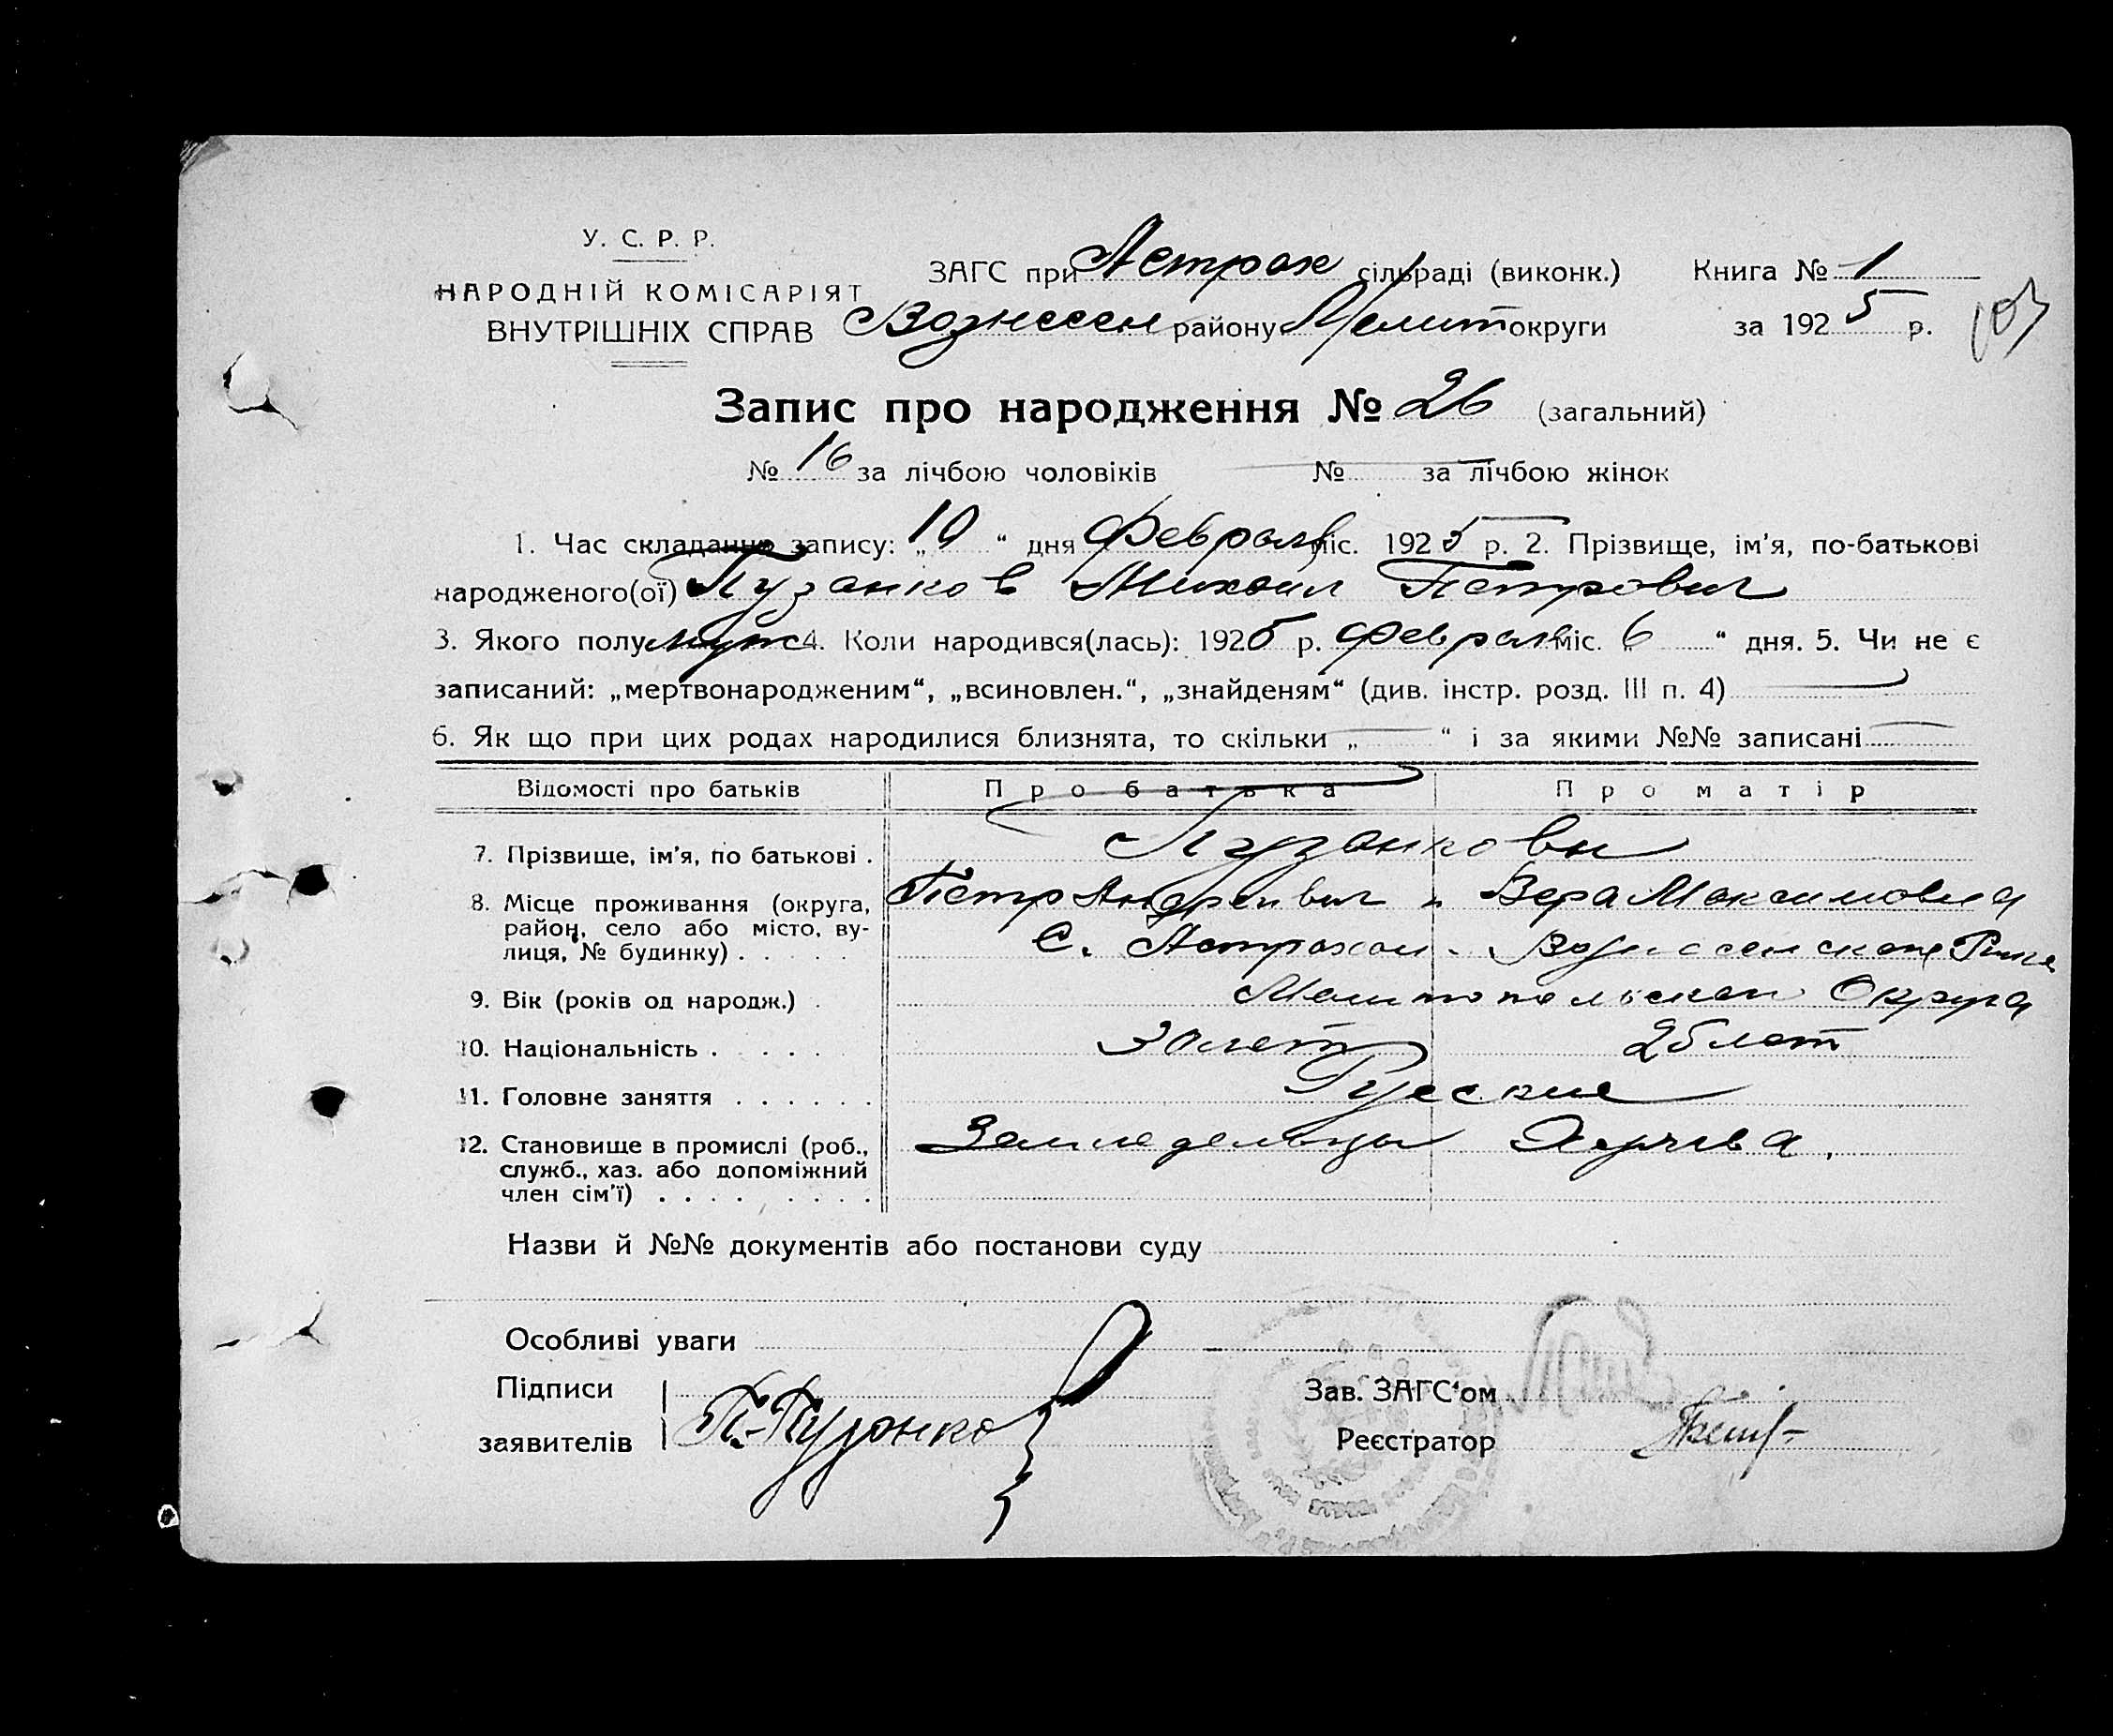 У. С. Р. Р.
НАРОДНІЙ КОМІСАРІЯТ
ВНУТРІШНІХ СПРАВ
ЗАГС при Астрах сільраді (виконк.) Книга № 1
Вознесен району Мелит округи за 1925 р.
103
Запис про народження № 26 (загальний)
№ 16 за лічбою чоловіків № за лічбою жінок
1. Час складання запису: „10“ дня Февраля міс. 1925 р. 2. Прізвище, ім'я, по-батькові
народженого(ої) Пузанков Михаил Петрович
3. Якого полу муж 4. Коли народився(лась): 1925 р. Февраля міс. „6“ дня. 5. Чи не є
записаний: „мертвонародженим“, „всиновлен.“, „знайденям“ (див. інстр. розд. III п. 4)
6. Як що при цих родах народилися близнята, то скільки „ “ і за якими №№ записані
Відомості про батьків Про батька Про матір
7. Прізвище, ім'я, по батькові . Пузанковы
8. Місце проживання (округа, Петр Андреевич и Вера Максимовна
район, село або місто, ву-
лиця, № будинку) . . . . . С. Астрахан. Вознесенскаго
9. Вік (років од народж.) . Мелитопольскай Округа
10. Національність . . . . . 30 лет 25 лет
11. Головне заняття . . . . . . Русские
12. Становище в промислі (роб., Земледельцы
служб., хаз. або допоміжний
член сім'ї) . . . . . . . . .
Назви й №№ документів або постанови суду
Особливі уваги
Підписи
заявителів П. Пузанков
Зав. ЗАГС'ом
Реєстратор